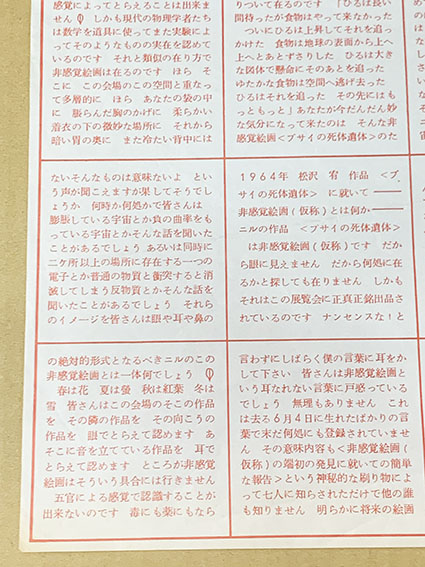 感覚によってとらえることは出来ま
せん しかも現代の物理学者たち
は数学を道具に使ってまた実験によ
ってそのようなものの実在を認めて
いるのです それと類似の在り方で
非感覚絵画は在るのです ほら そ
こに この会場のこの空間と重なっ
て多層的に ほら あなたの袋の中
に 脹らんだ胸のかげに 柔らかい
着衣の下の微妙な場所に それから
暗い胃の奥に また冷たい背中には
りついて在るのです 「ひるは長い
間待ったが食物はやって来なかった
ついにひるは上昇してそれを追っ
かけた 食物は地球の表面から上へ
上へとあとずさりした ひるは大き
な図体で懸命にそのあとを追った
ゆたかな食物は空間へ逃げ去った
ひるはそれを追った その先にはも
っともっと」あなたが今だんだん妙
な気分になって来たのは そんな非
感覚絵画<プサイの死体遺体>のた
ないそんなものは意味ないよ とい
う声が聞こえますが果してそうでし
ょうか 何時か何処かで皆さんは
膨脹している宇宙とか負の曲率をも
っている宇宙とかそんな話を聞いた
ことがあるでしょう あるいは同時に
二ケ所以上の場所に存在する一つの
電子とか普通の物質と衝突すると消
滅してしまう反物質とかそんな話を
聞いたことがあるでしょう それら
のイメージを皆さんは眼や耳や鼻の
1964年 松沢 宥 作品 <プ
サイの死体遺体> に就いて ――
非感覚絵画(仮称)とは何か――
ニルの作品 <プサイの死体遺体>
は非感覚絵画(仮称)です だか
ら眼に見えません だから何処に在
るかと探しても在りません しかも
それはこの展覧会に正真正銘出品さ
れているのです ナンセンスだ!と
の絶対的形式となるべきニルのこの
非感覚絵画とは一体何でしょう
春は花 夏は螢 秋は紅葉 冬は
雪 皆さんはこの会場のそこの作品
を その隣の作品を その向うの
作品を 眼でとらえて認めます あ
そこに音を立てている作品を 耳で
とらえて認めます ところが非感覚
絵画はそういう具合には行きません
五官による感覚で認識することが
出来ないのです 毒にも薬にもなら
言わずにしばらく僕の言葉に耳をか
して下さい 皆さんは非感覚絵画と
いう耳なれない言葉に戸惑っている
でしょう 無理もありません これ
は去る6月4日に生れたばかりの言
葉で末だ何処にも登録されていませ
ん その意味内容も<非感覚絵画
(仮称)の端初の発見に就いての簡単
な報告>という神秘的な刷り物によ
って七人に知らされただけで他の誰
も知りません 明らかに将来の絵画